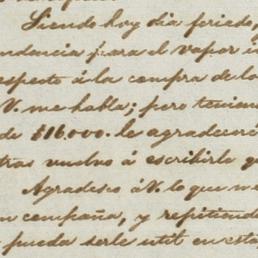 Siendo hoy dia feriado,
para el vapor
respecto á la compra de lo
V. me habla; pero
de £16.000. le
tras vuelvo á escribirle q
Agradesco á V. lo que me
n compañia, y repitiendo
pueda serle util en esta